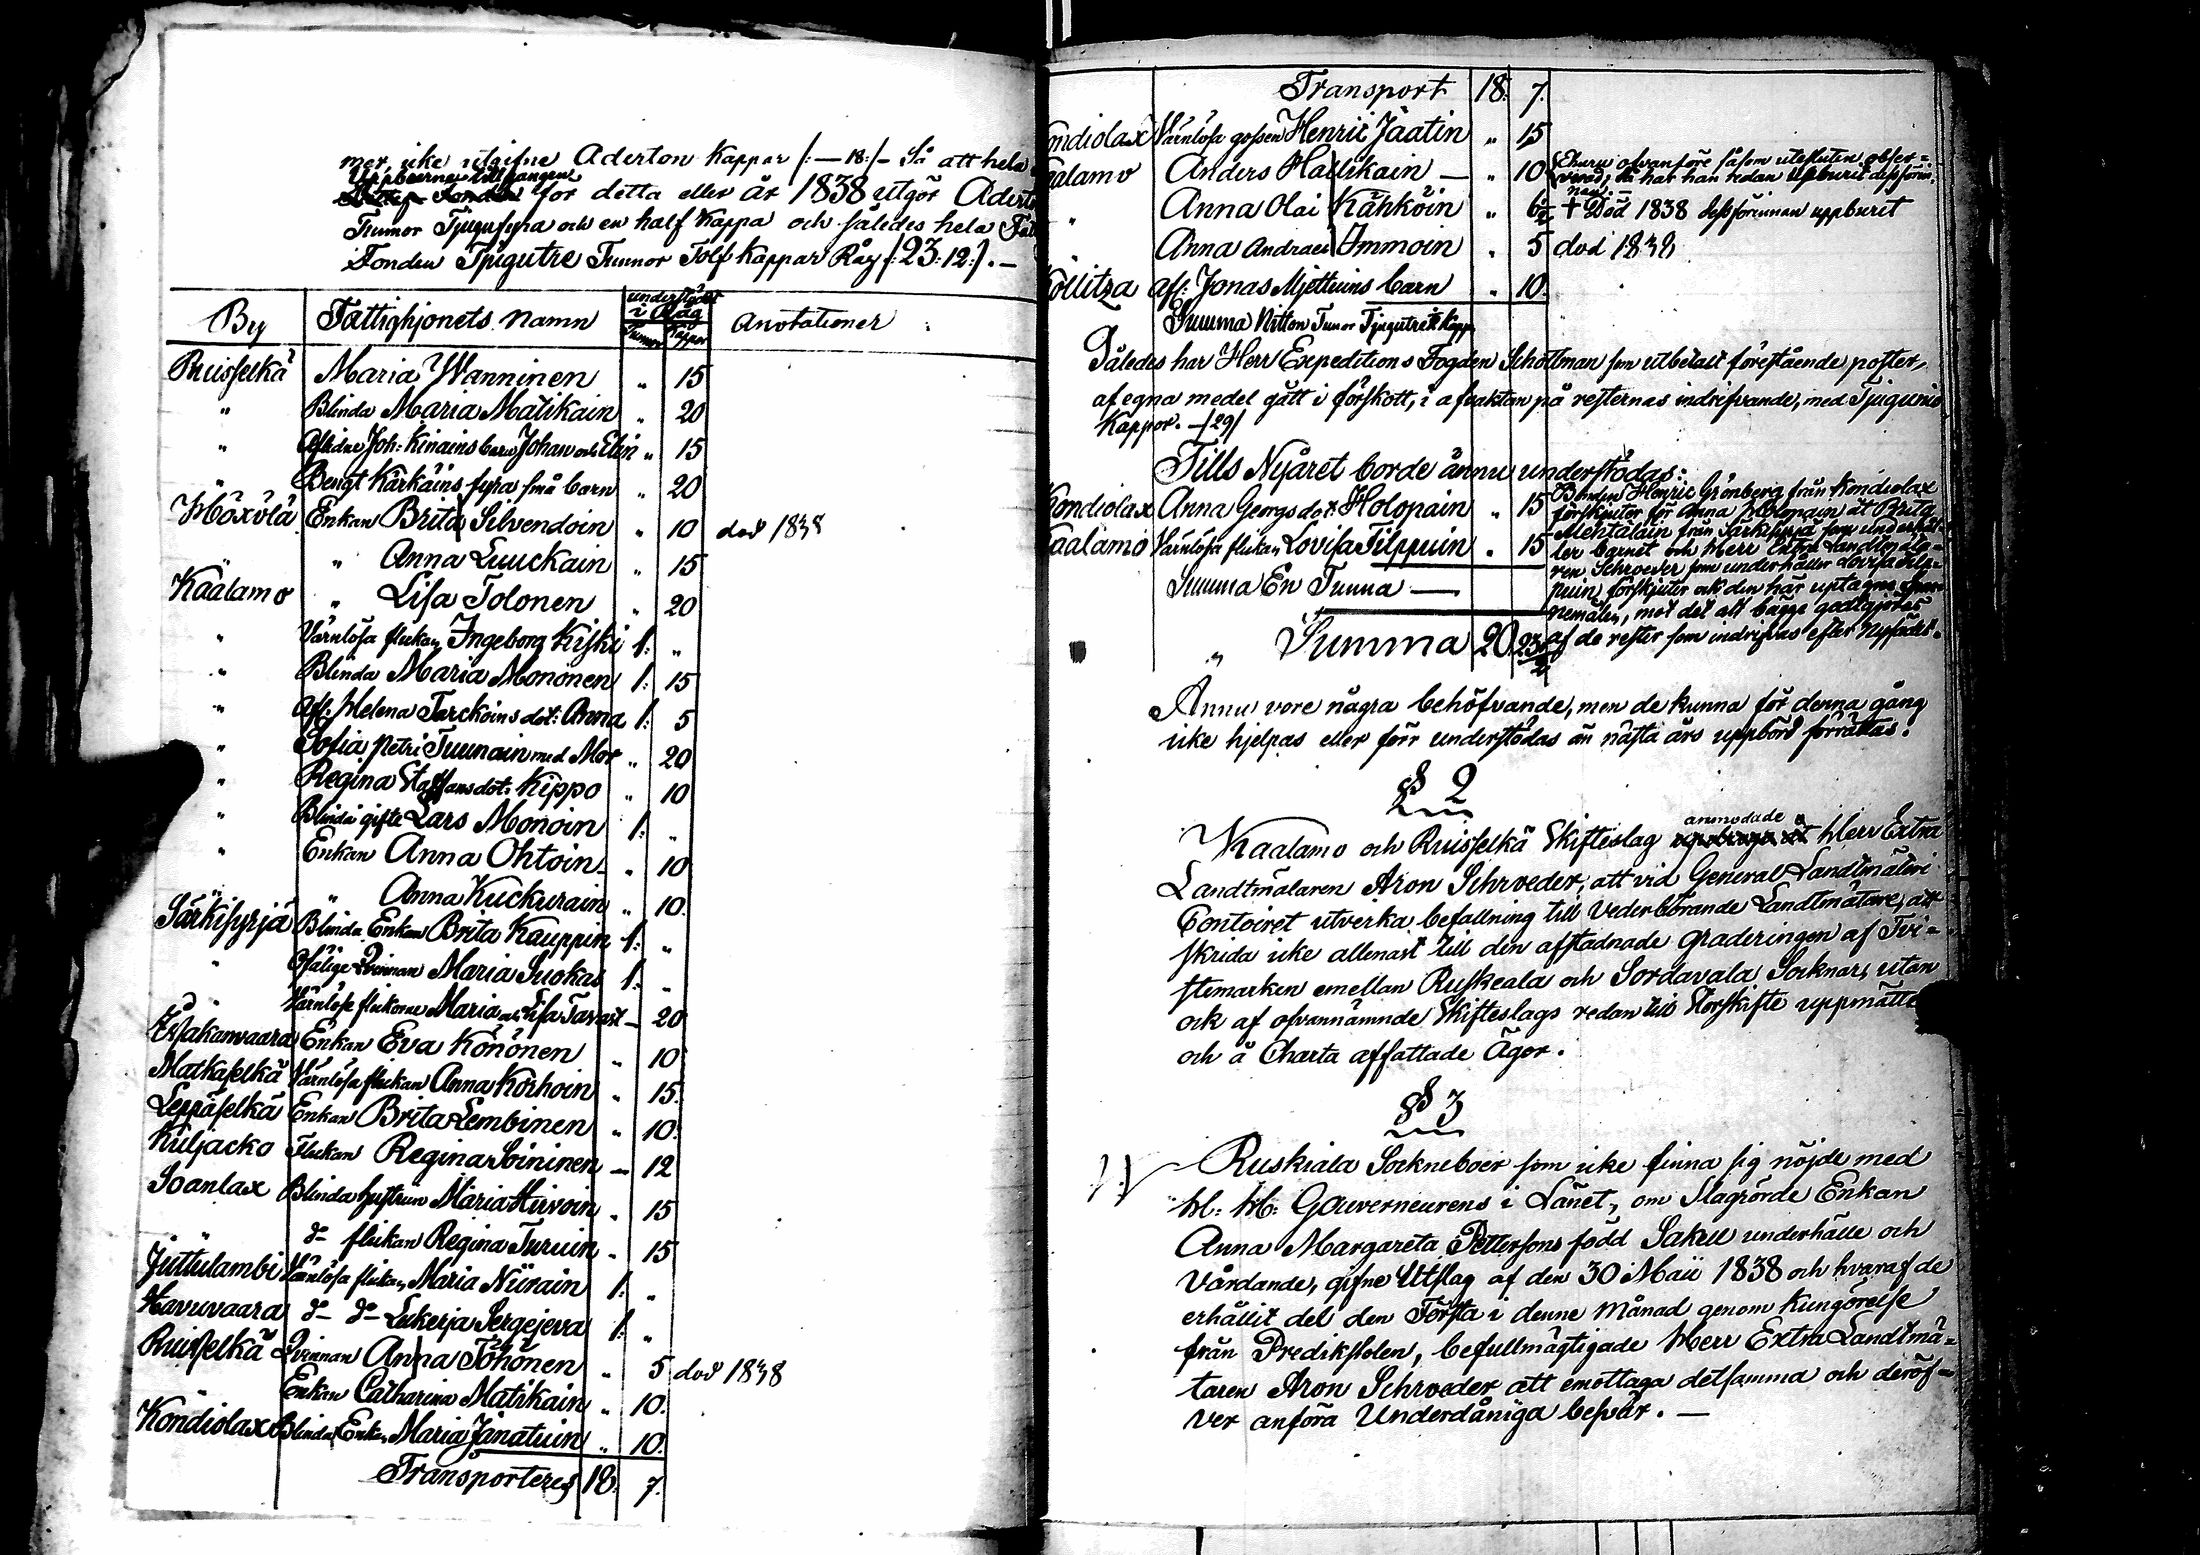 mer icke utgifne Aderton Kappar /:—18:/— Så att hela
Uppbeerne tillgangen
Fonden för detta eller år 1838 utgör Adert
Tunnor Tjugufyra och en half Kappa och således hela Fat
Fonden Tjugutre Tunnor Tolf Kappar Råg /:23:12:/.—
By Fattighjonets Namn understödet i Råg Anotationer
Tunnor Kappor
Ruisselkä Maria Wanninen " 15
" Blinda Maria Matikain " 20
" Aflidne Joh: Kinains barn Johan och Elin " 15
" Bengt Kärkäins fyra små barn " 20
Höxölä Enkan Brita Silvendoin " 10 död 1838
" " Anna Luuckain " 15
Kaalamo " Lisa Tolonen " 20
" Värnlösa flickan Ingeborg Kiski 1: "
" Blinda Maria Mononen 1: 15
" Afl: Helena Tarckoins dot: Anna 1: 5
" Sofia Petri Tuunain med Mor " 20
" Regina Staffansdot: Kippo " 10
" Blinda gifte Lars Monoin 1: "
" Enkan Anna Ohtoin " 10
" " Anna Kuckurain " 10.
Särkisyrjä Blinda Enkan Brita Kauppin 1: "
" Ofälige Qvinnan Maria Suokas 1: "
" Värnlöse flickorne Maria och Lisa Tavast — 20
Enkan Eva Könönen " 10
Matkaselkä Värnlösa flickan Anna Korhoin " 15.
Leppäselkä Enkan Brita Lembinen " 10.
Kuljacko Flickan Regina Soininen — 12
Soanlax Blinda hustrun Maria Hirvoin " 15
" d— flickan Regina Turuin " 15
Juttulambi Värnlösa flickan Maria Niirain 1: "
Havuvaara d— d— Lukerja Sergejeva 1: "
Ruisselkä Qvinnan Anna Töhönen " 5 död 1838
" Enkan Catharina Matikain " 10.
Kondiolax Blinda Enkan Maria Jänatuin " 10.
Transporteres 18. 7.
Transport 18. 7.
ondiolax Värnlösa gossen Henric Jäatin " 15
aalamo Anders Hallikain — " 10 Ehuru ofvanföre såsom utesluten obser=
verad, så har han redan upburit dessförin=
nan.—
" Anna Olai Kähköin " 6½ + Död 1838 dessförinnan uppburit
" Anna Andraei Immoin " 5 död 1838
Kollitza afl: Jonas Mjettuins barn " 10.
Summa Nitton Tunor Tjugutre ½ Kapp
Således har Herr Expeditions Fogden Schottman som utbetalt förestående poster,
af egna medel gått i förskott, i afvaktan på resternas indrifvande, med Tjugunio
Kappor.—/29/
Tills Nyåret borde ännu understödas:
Kondiolax Anna Georgs dotr Holopain " 15 Bonden Henric Grönberg från Kondiolax
förskjuter för Anna Holopain åt Brita
Kaalamo Värnlösa flickan Lovisa Filppuin " 15 Mehtälain från Särkisyrjä som underhål=
ler barnet och Herr Extra Landtmäta=
ren Schroeder som underhåller Lovisa Filp=
Summa En Tunna — puin, förskjuter ock den här uptagne
nemälen, mot det att bägge godtgjöras
" Summa 20 23½ af de rester som indrifvas efter Nyåret.
Ännu vore några behöfvande, men de kunna för denna gång
icke hjelpas eller förr understödas än nästa års uppbörd förrättas.
§ 2
Kaalamo och Ruisselkä Skifteslag anmodade Herr Extra
Landtmätaren Aron Schroeder, att vid General Landtmäteri
Contoiret utverka befallning till Vederbörande Landtmätare, att
skrida icke allenast till den afstadnade graderingen af Tvi=
stemarken emellan Ruskeala och Sordavala Socknar, utan
ock af ofvannämnde Skifteslags redan till Storskifte uppmätte
och å Charta affattade Ägor.
§ 3
Ruskiala Sockneboer som icke finna sig nöjde med
H: H: Gouverneurens i Länet, om Slagrörde Enkan
Anna Margareta Pettersons född Sakell underhålle och
Vårdande, gifne Utslag af den 30 Maii 1838 och hvaraf de
erhållit del den Första i denne Månad genom Kungörelse
från Predikstolen, befullmägtigade Herr Extra Landtmä=
taren Aron Schroeder att emottaga detsamma och deröf=
ver anföra Underdåniga besvär.—